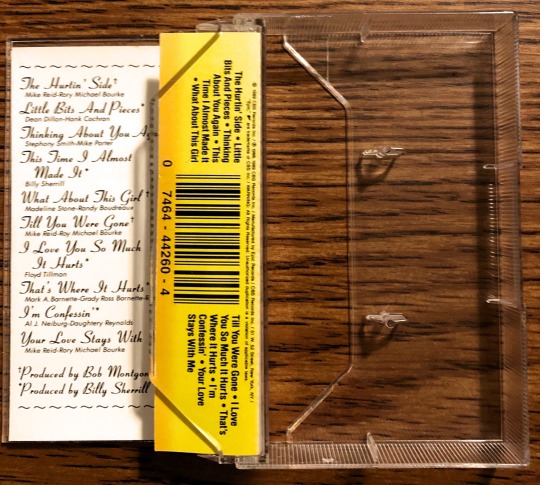 The Hurtin' Side†
Mike Reid-Rory Michael Bourke
Little Bits And Pieces*
Dean Dillon-Hank Cochran
Thinking About You
Stephony Smith-Mike Porter
This Time I Almost
Made It*
Billy Sherrill
What About This Girl
Madeline Stone-Randy Boudreaux
Till You Were Gone†
Mike Reid-Rory Michael Bourke
I Love You So Much
It Hurts*
Floyd Tillman
That's Where It Hurts*
Mark A. Barnette-Grady Ross Barnette-R
I'm Confessin'*
Al J. Neiburg-Daughtery Reynolds
Your Love Stays With
Mike Reid-Rory Michael Bourke
†Produced by Bob Montgom
*Produced by Billy Sherrill
The Hurtin' Side • Little
Bits And Pieces • Thinking
About You Again • This
Time I Almost Made It
• What About This Girl
0 7464-44260-4
Till You Were Gone • I Love
You So Much It Hurts • That's
Where It Hurts • I'm
Confessin' • Your Love
Stays With Me